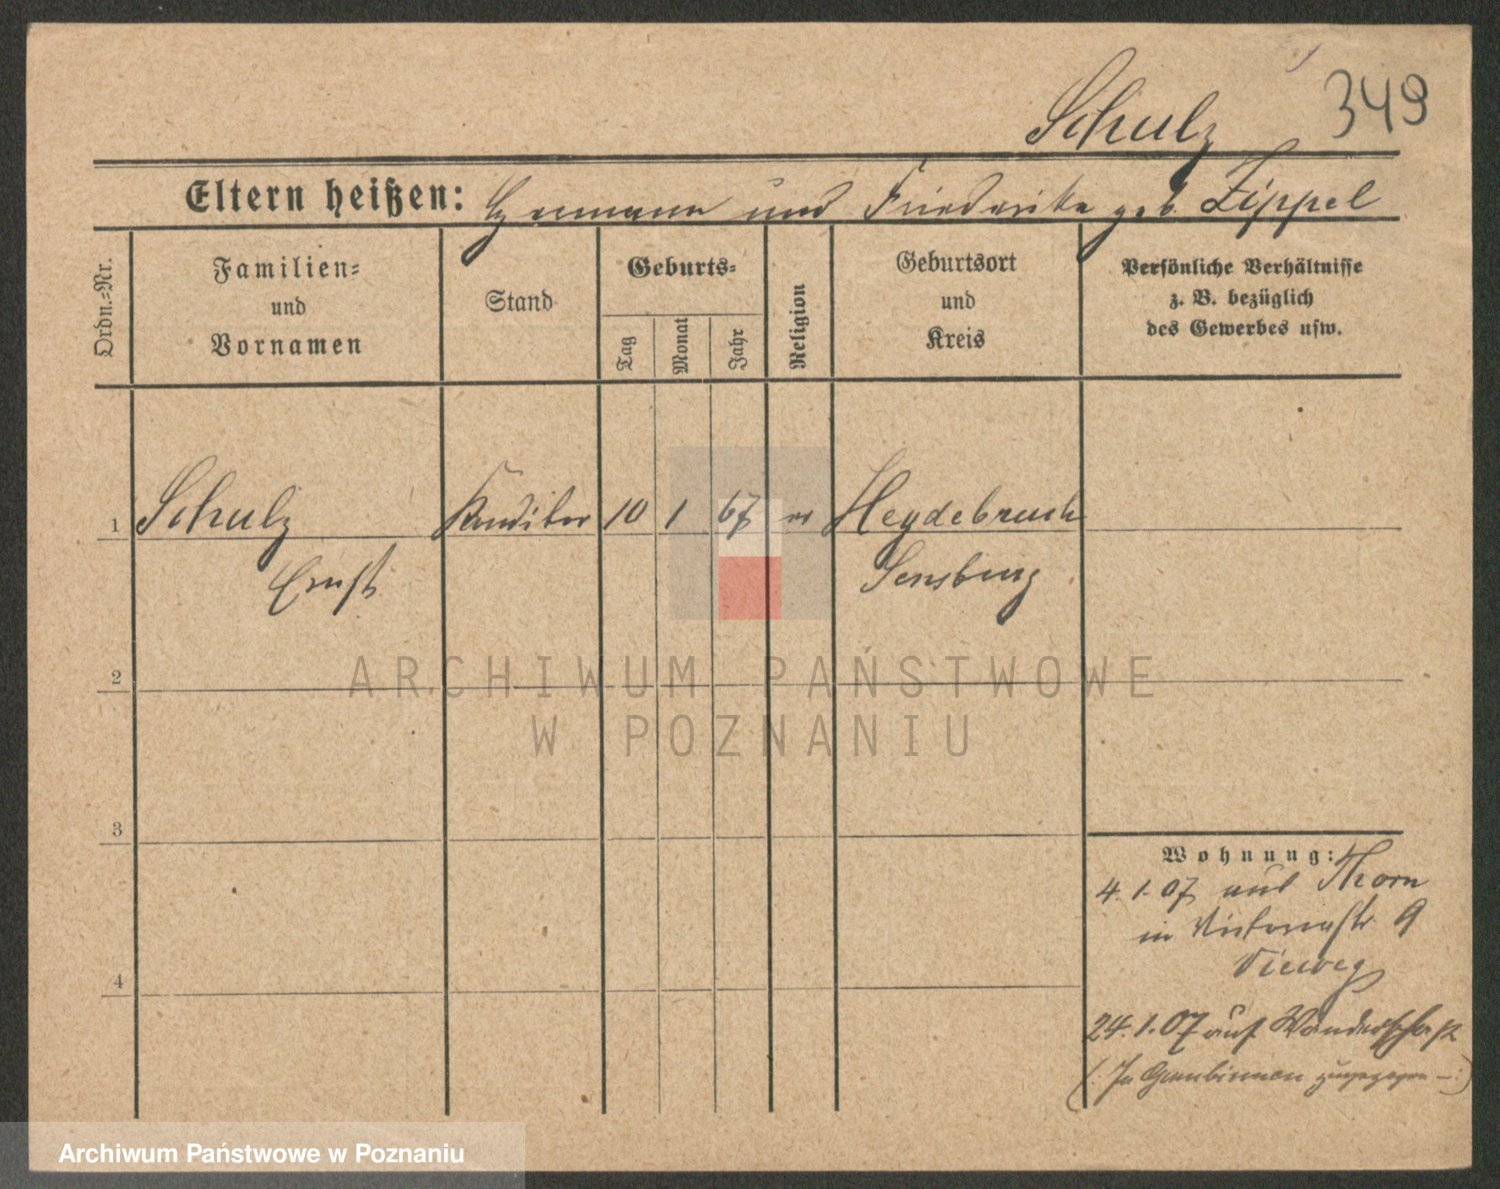 349
Schulz
Eltern heißen: Hermann und Friederike geb. Zippel
Ordn.=Nr.
Familien=
und
Vornamen
Stand
Geburts=
Tag
Monat
Jahr
Religion
Geburtsort
und
Kreis
Persönliche Verhältnisse
z. B. bezüglich
des Gewerbes usw.
1 Schulz Konditor 10 1 67 ev Heydebruch
Ernst Sensburg
2
3
4
Wohnung:
4.1.07 aus Thorn
in Victoriastr. 9
Vieweg
24.1.07 auf Wanderschaft
(: In Gumbinnen zugezogen :)
ARCHIWUM PAŃSTWOWE
W POZNANIU
Archiwum Państwowe w Poznaniu